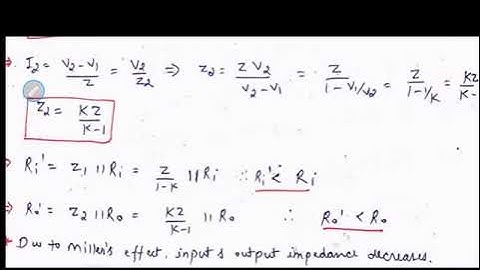 I2 = V2-V1/Z = V2/Z2 ⇒ Z2 = Z V2/V2-V1 = Z/1-V1/V2 = Z/1-1/K = KZ/K-
Z2 = KZ/K-1
Ri' = Z1 || Ri = Z/1-K || Ri ∴ Ri' < Ri
Ro' = Z2 || Ro = KZ/K-1 || Ro ∴ Ro' < Ro
Due to Miller's effect, input & output impedance decreases.